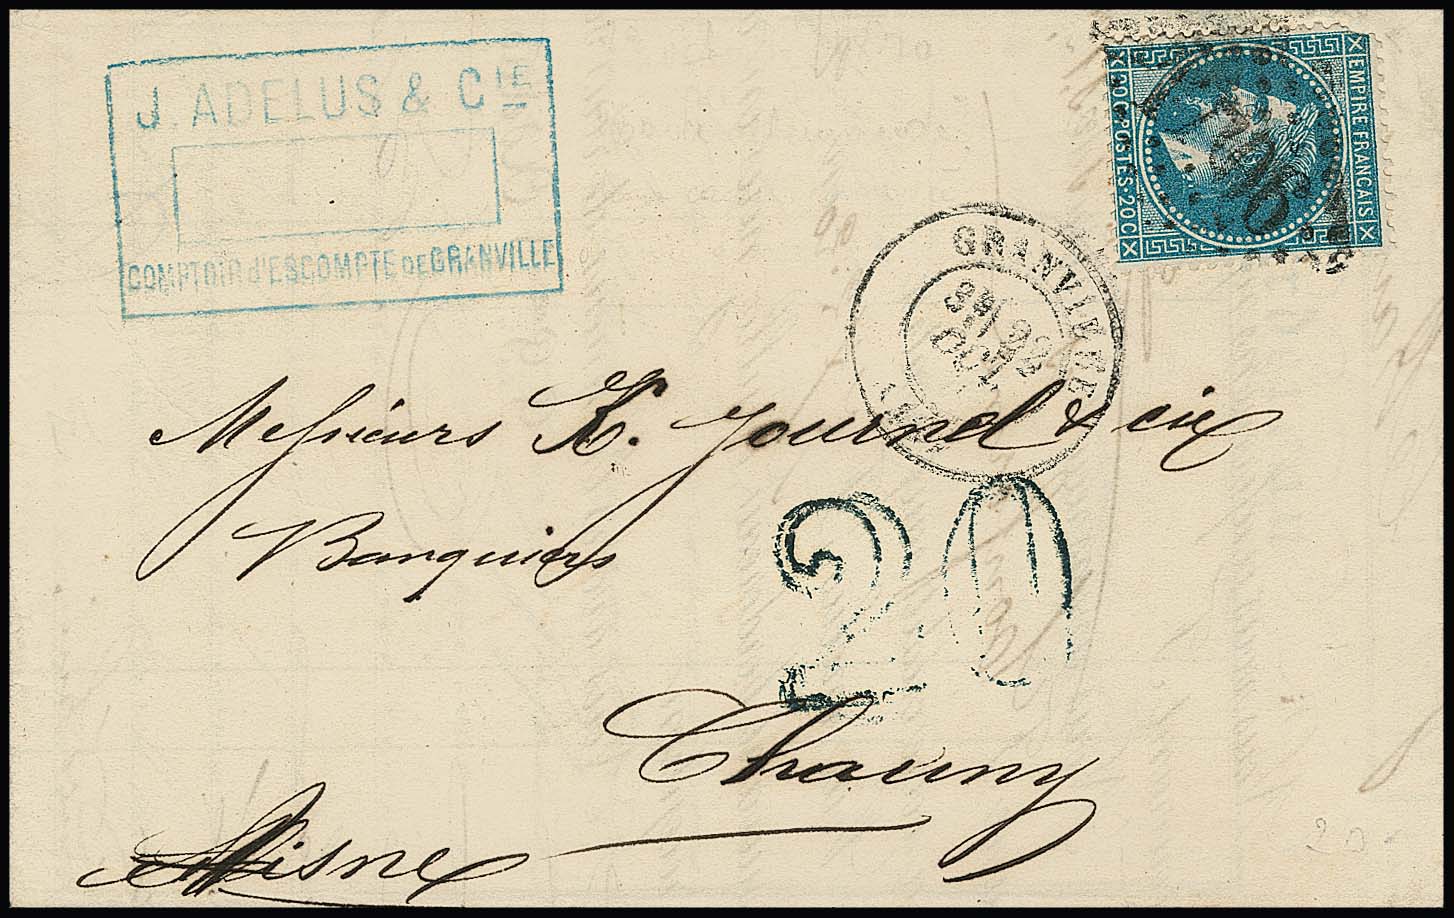 J. ADELUS & CIE
COMPTOIR d'ESCOMPTE DE GRANVILLE
EMPIRE FRANCAIS
20 C POSTES 20 C
GRANVILLE
22
OCT
Messieurs E. Journel & cie
Banquiers
20
Chauny
Aisne
20